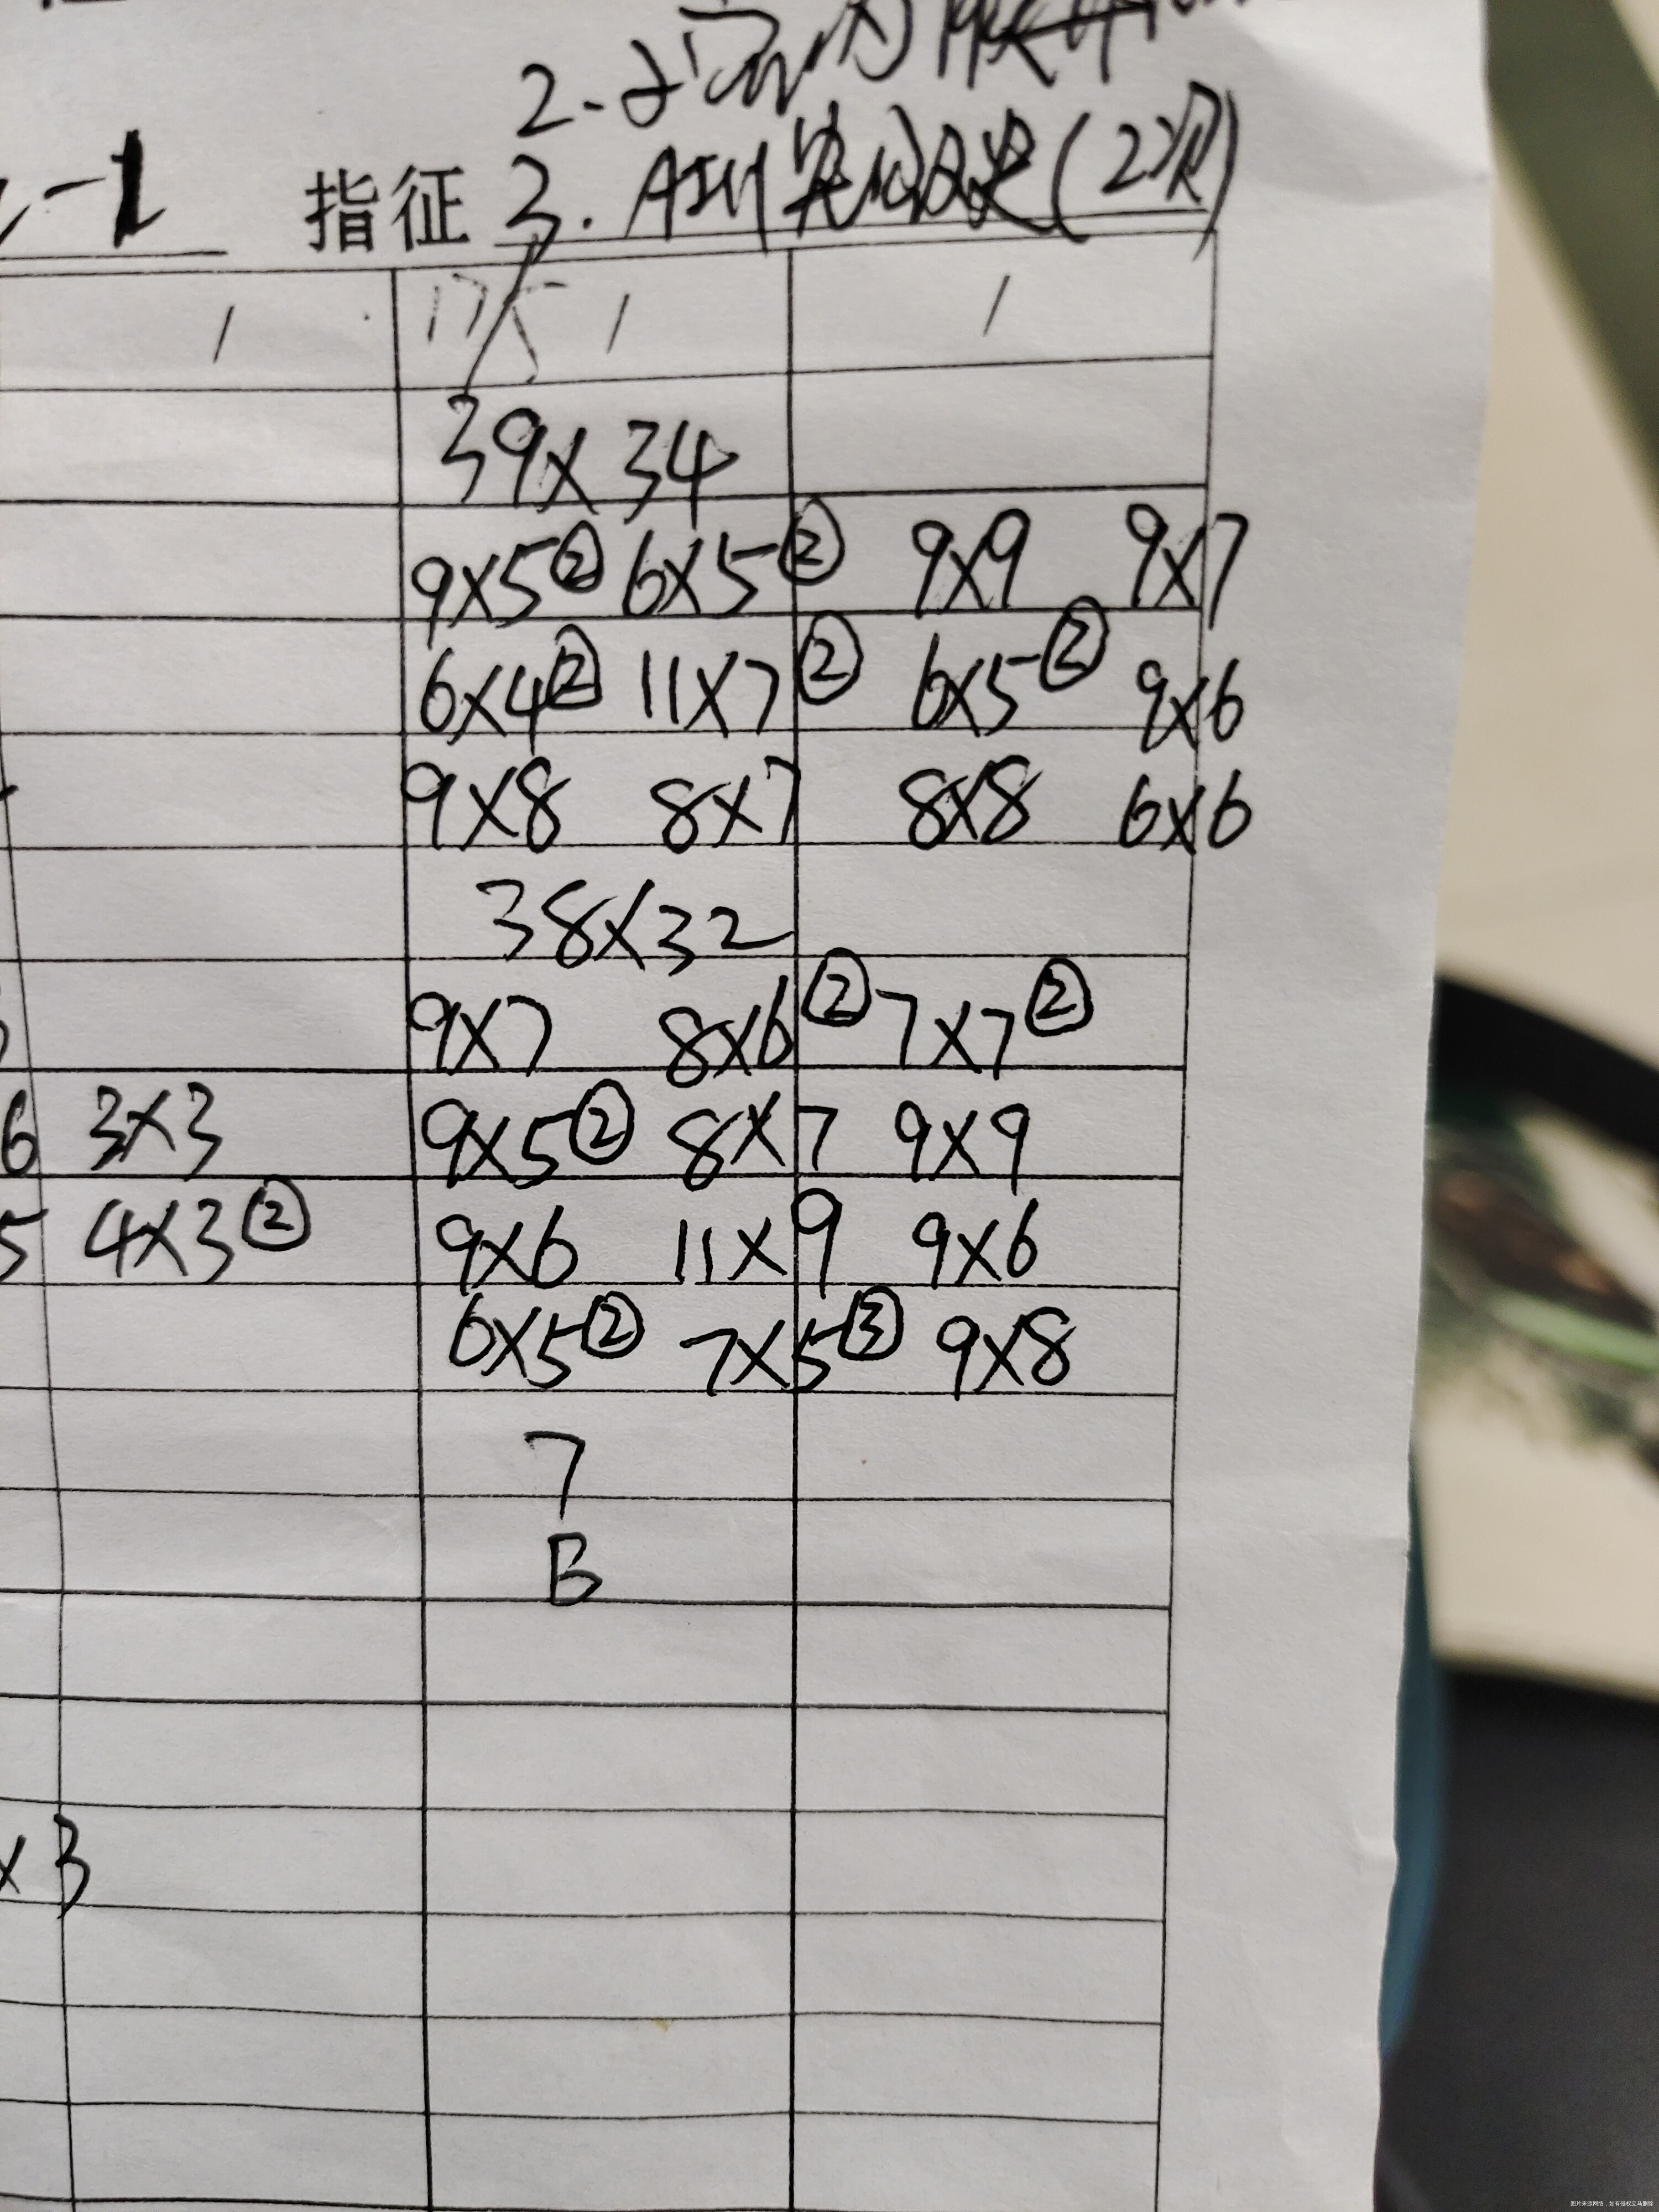 2.
-1 指征 3. AIH 失败(2次)
1 1 1
39x34
9x5② 6x5② 9x9 9x7
6x4② 11x7② 6x5② 9x6
9x8 8x7 8x8 6x6
38x32
9x7 8x6② 7x7②
6 3x3 9x5② 8x7 9x9
5 4x3② 9x6 11x9 9x6
6x5② 7x5③ 9x8
7
B
x3
图片来源网络,如有侵权立马删除